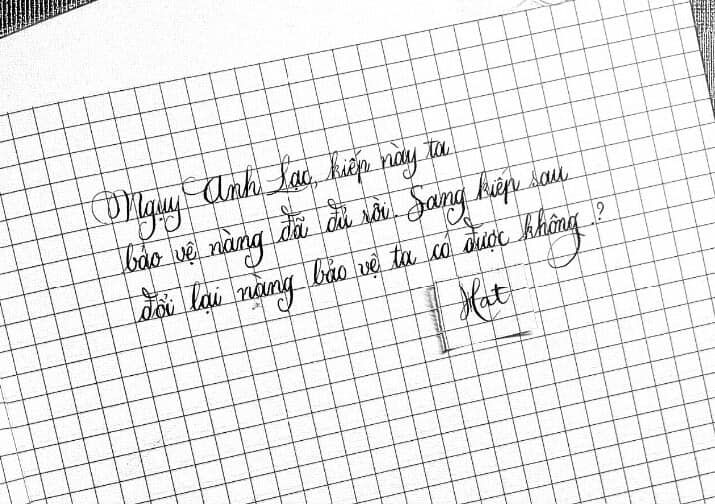 Ngụy Anh Lạc, kiếp này ta
bảo vệ nàng đã đủ rồi. Sang kiếp sau
đổi lại nàng bảo vệ ta có được không.?
Hat